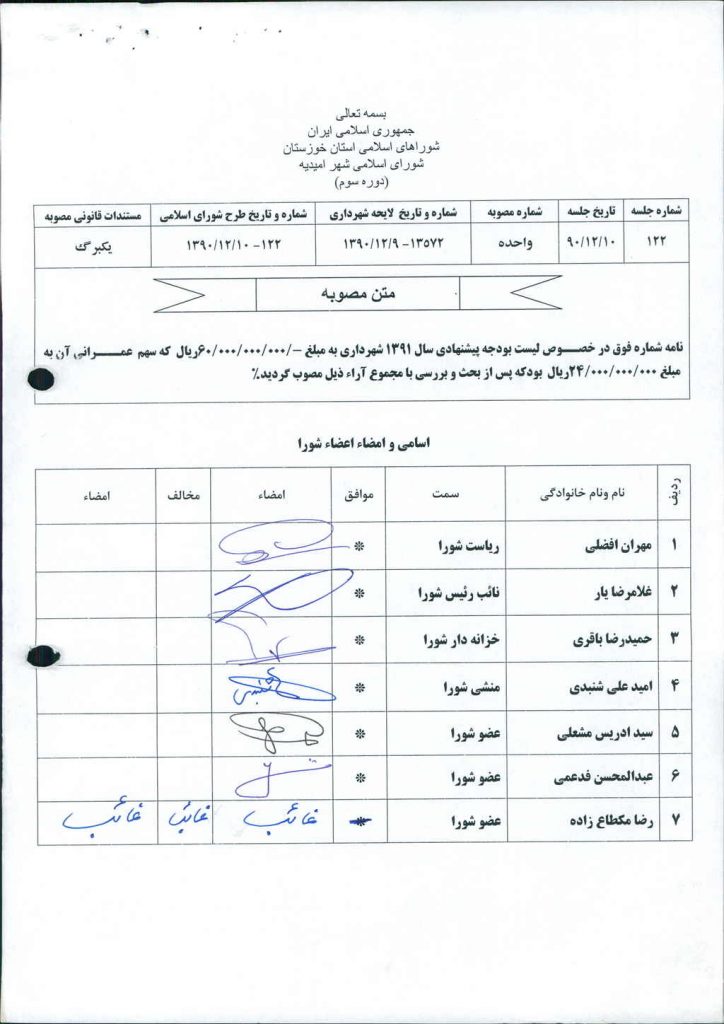 بسمه تعالی
جمهوری اسلامی ایران
شوراهای اسلامی استان خوزستان
شورای اسلامی شهر امیدیه
(دوره سوم)
شماره جلسه	تاریخ جلسه	شماره مصوبه	شماره و تاریخ لایحه شهرداری	شماره و تاریخ طرح شورای اسلامی	مستندات قانونی مصوبه
۱۲۲	۹۰/۱۲/۱۰	واحده	۱۳۵۷۲- ۱۳۹۰/۱۲/۹	۱۲۲- ۱۳۹۰/۱۲/۱۰	یکبرگ
متن مصوبه
نامه شماره فوق در خصوص لیست بودجه پیشنهادی سال ۱۳۹۱ شهرداری به مبلغ -/۶۰/۰۰۰/۰۰۰/۰۰۰ریال که سهم عمرانی آن به
مبلغ ۲۴/۰۰۰/۰۰۰/۰۰۰ریال بودکه پس از بحث و بررسی با مجموع آراء ذیل مصوب گردید.٪
اسامی و امضاء اعضاء شورا
ردیف	نام ونام خانوادگی	سمت	موافق	امضاء	مخالف	امضاء
۱	مهران افضلی	ریاست شورا	*
۲	غلامرضا یار	نائب رئیس شورا	*
۳	حمیدرضا باقری	خزانه دار شورا	*
۴	امید علی شنبدی	منشی شورا	*
۵	سید ادریس مشعلی	عضو شورا	*
۶	عبدالمحسن فدعمی	عضو شورا	*
۷	رضا مکطاع زاده	عضو شورا	*	غائب	غائب	غائب